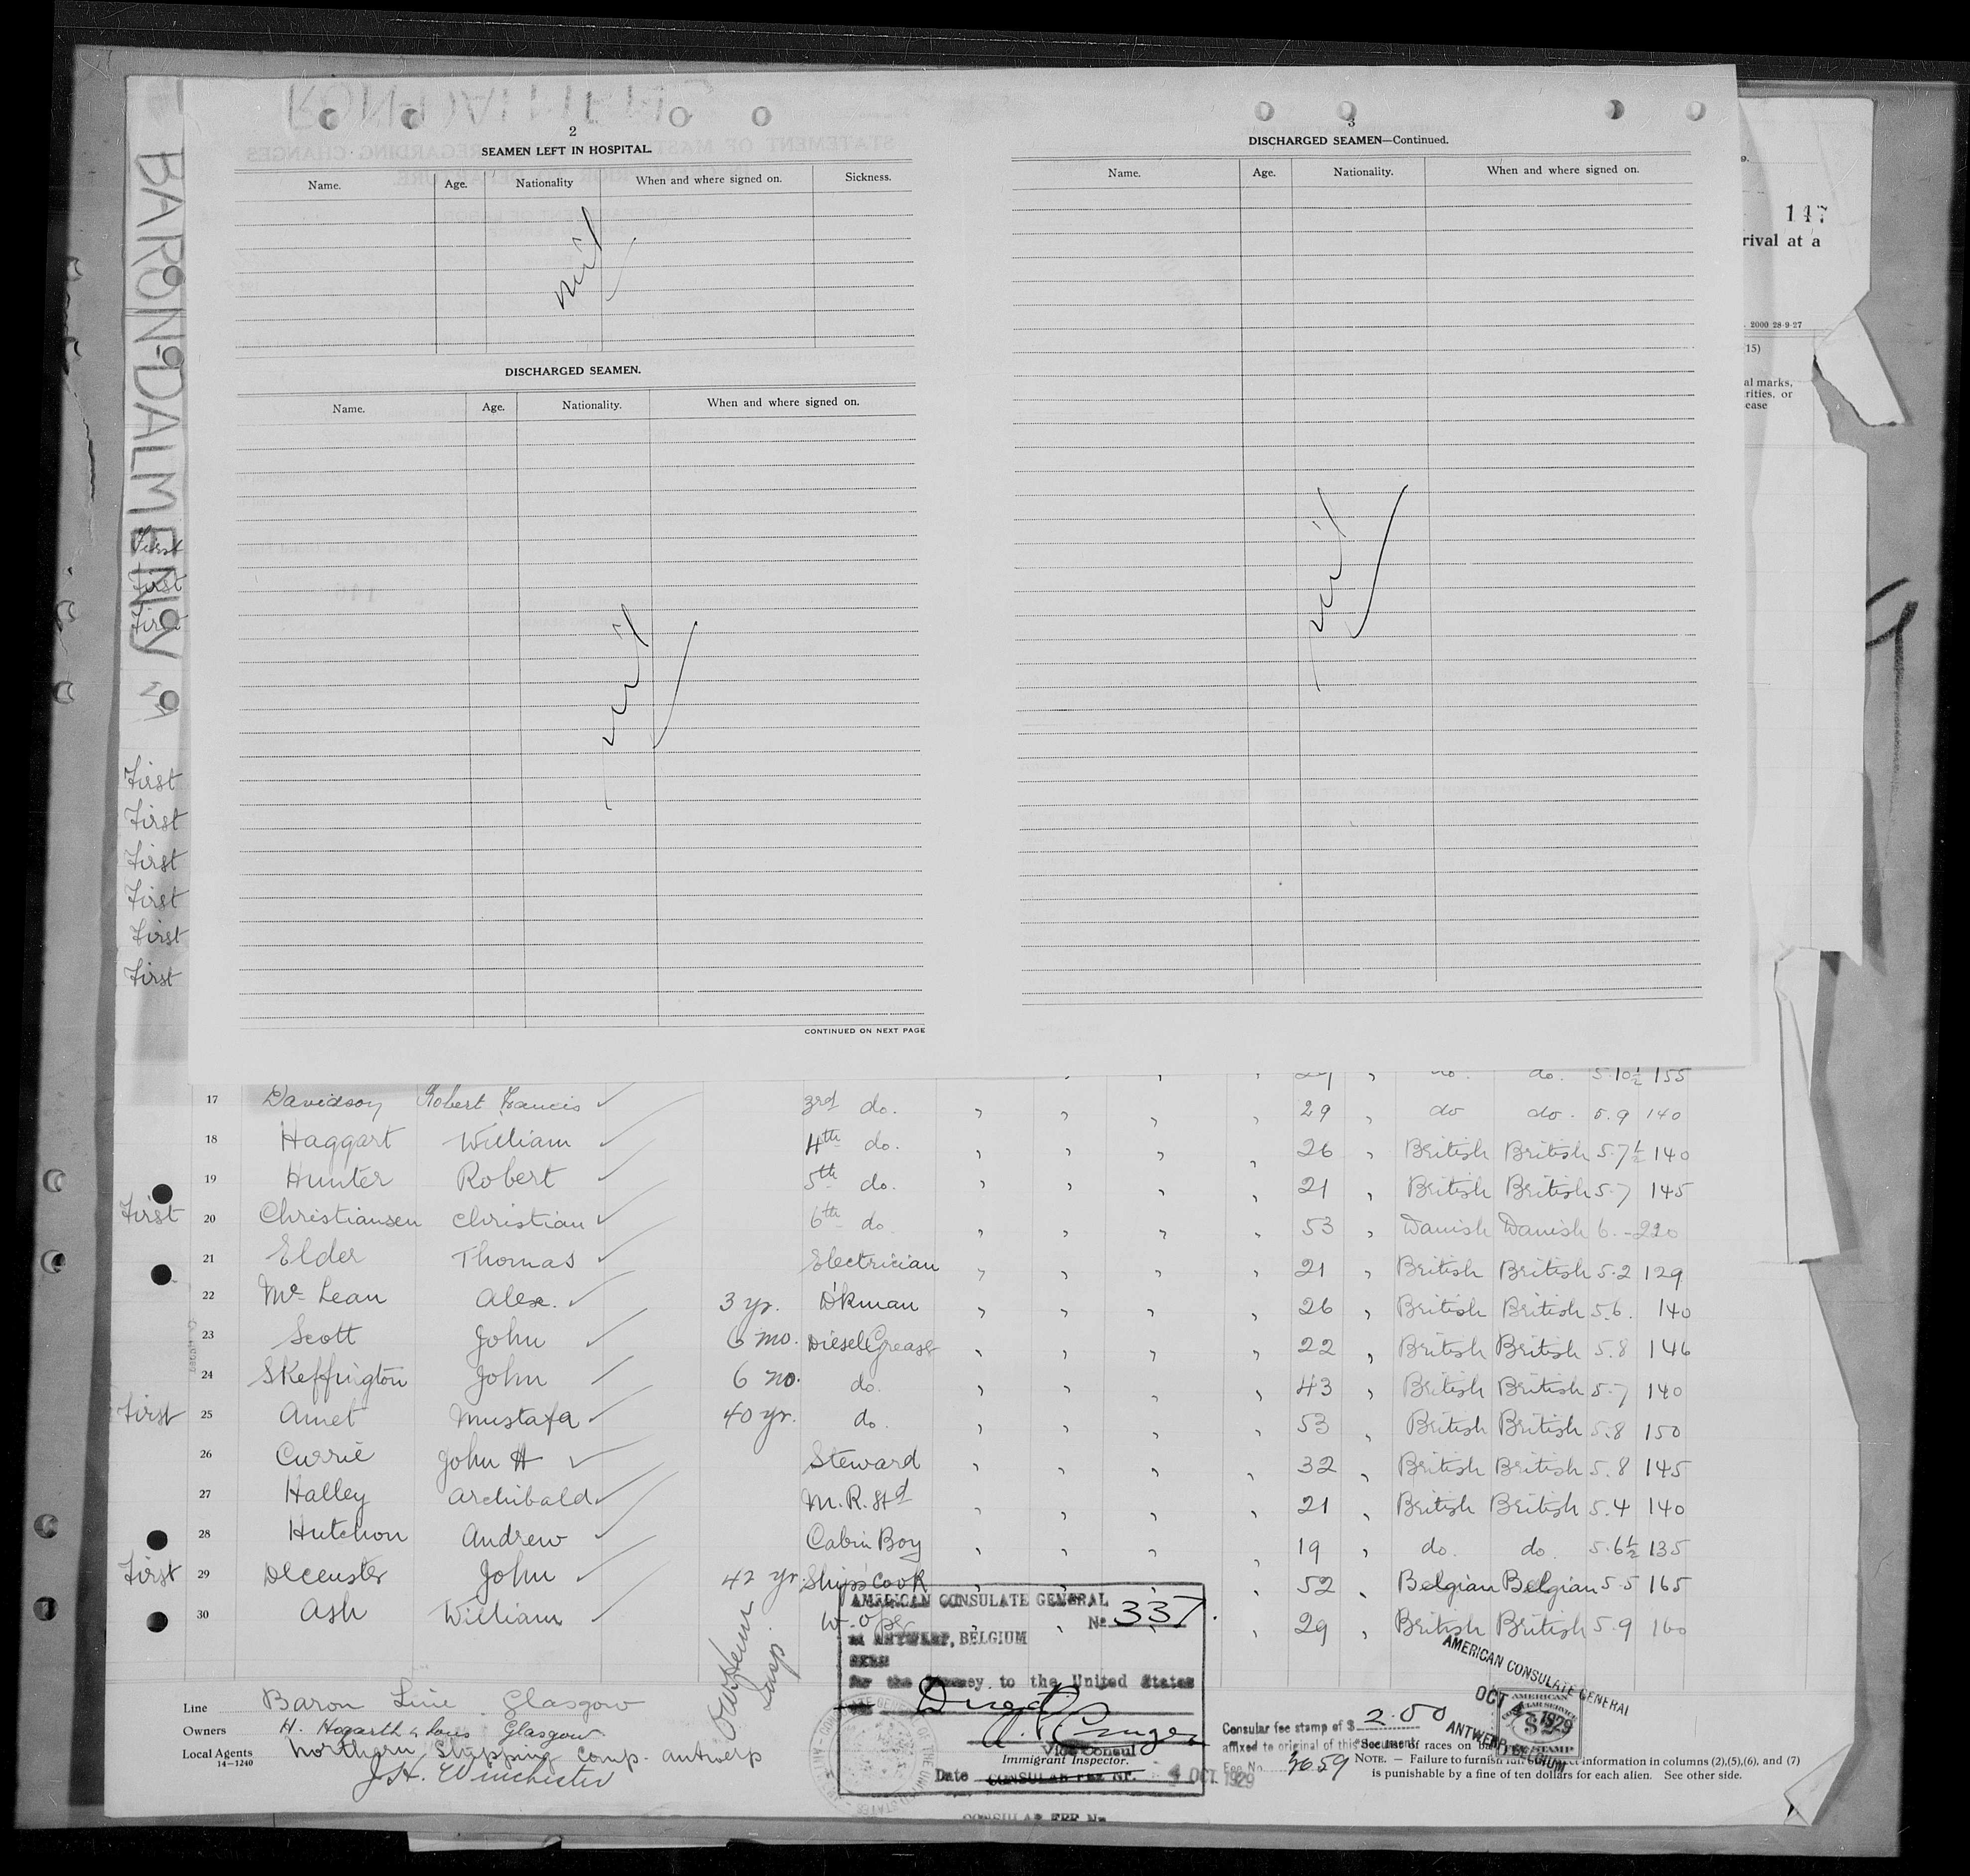 BARON-DALMENY
2
SEAMEN LEFT IN HOSPITAL.
Name. Age. Nationality When and where signed on. Sickness.
nil
DISCHARGED SEAMEN.
Name. Age. Nationality. When and where signed on.
nil
CONTINUED ON NEXT PAGE
3
DISCHARGED SEAMEN—Continued.
Name. Age. Nationality. When and where signed on.
nil
147
rival at a
2000 28-9-27
(15)
al marks,
rities, or
ease
First
First
First
First
First
First
First
First
First
do. 5.10½ 155
17 Davidson Robert Francis 3rd do. " " " 29 " do do. 5.9 140
18 Haggart William 4th do. " " " " 26 " British British 5.7½ 140
19 Hunter Robert 5th do. " " " " 21 " British British 5.7 145
First 20 Christiansen Christian 6th do " " " " 53 " Danish Danish 6.- 220
21 Elder Thomas Electrician " " " " 21 " British British 5.2 129
22 Mc Lean Alex. 3 yr. D'kman " " " " 26 " British British 5.6. 140
23 Scott John 6 mo. Diesel Greaser " " " " 22 " British British 5.8 146
24 Skeffington John 6 mo. do. " " " " 43 " British British 5.7 140
First 25 Amet Mustafa 40 yr. do. " " " " 53 " British British 5.8 150
26 Currie John H Steward " " " " 32 " British British 5.8 145
27 Halley Archibald M.R. Std " " " " 21 " British British 5.4 140
28 Hutchon Andrew Cabin Boy " " " " 19 " do. do. 5.6½ 135
First 29 John 42 yr. Ship's Cook " " " " 52 " Belgian Belgian 5.5 165
30 Ash William " " " 29 " British British 5.9 160
Line Baron Line Glasgow
Owners H. Hogarth & Sons Glasgow
Local Agents Northern Shipping Comp. Antwerp
14—1240
J.H. Winchester
AMERICAN CONSULATE GENERAL
No 337.
at ANTWERP, BELGIUM
SEEN
for the journey to the United States
Vice Consul
Immigrant Inspector.
Date CONSULAR FEE Nr. 4 OCT. 1929
CONSULAR FEE Nr
Consular fee stamp of $ 2.00
affixed to original of this document.
Fee No. 4659
AMERICAN CONSULATE GENERAL
OCT 4 - 1929
ANTWERP, BELGIUM
AMERICAN
$2
STAMP
See list of races on
NOTE. — Failure to furnish information in columns (2),(5),(6), and (7)
is punishable by a fine of ten dollars for each alien. See other side.